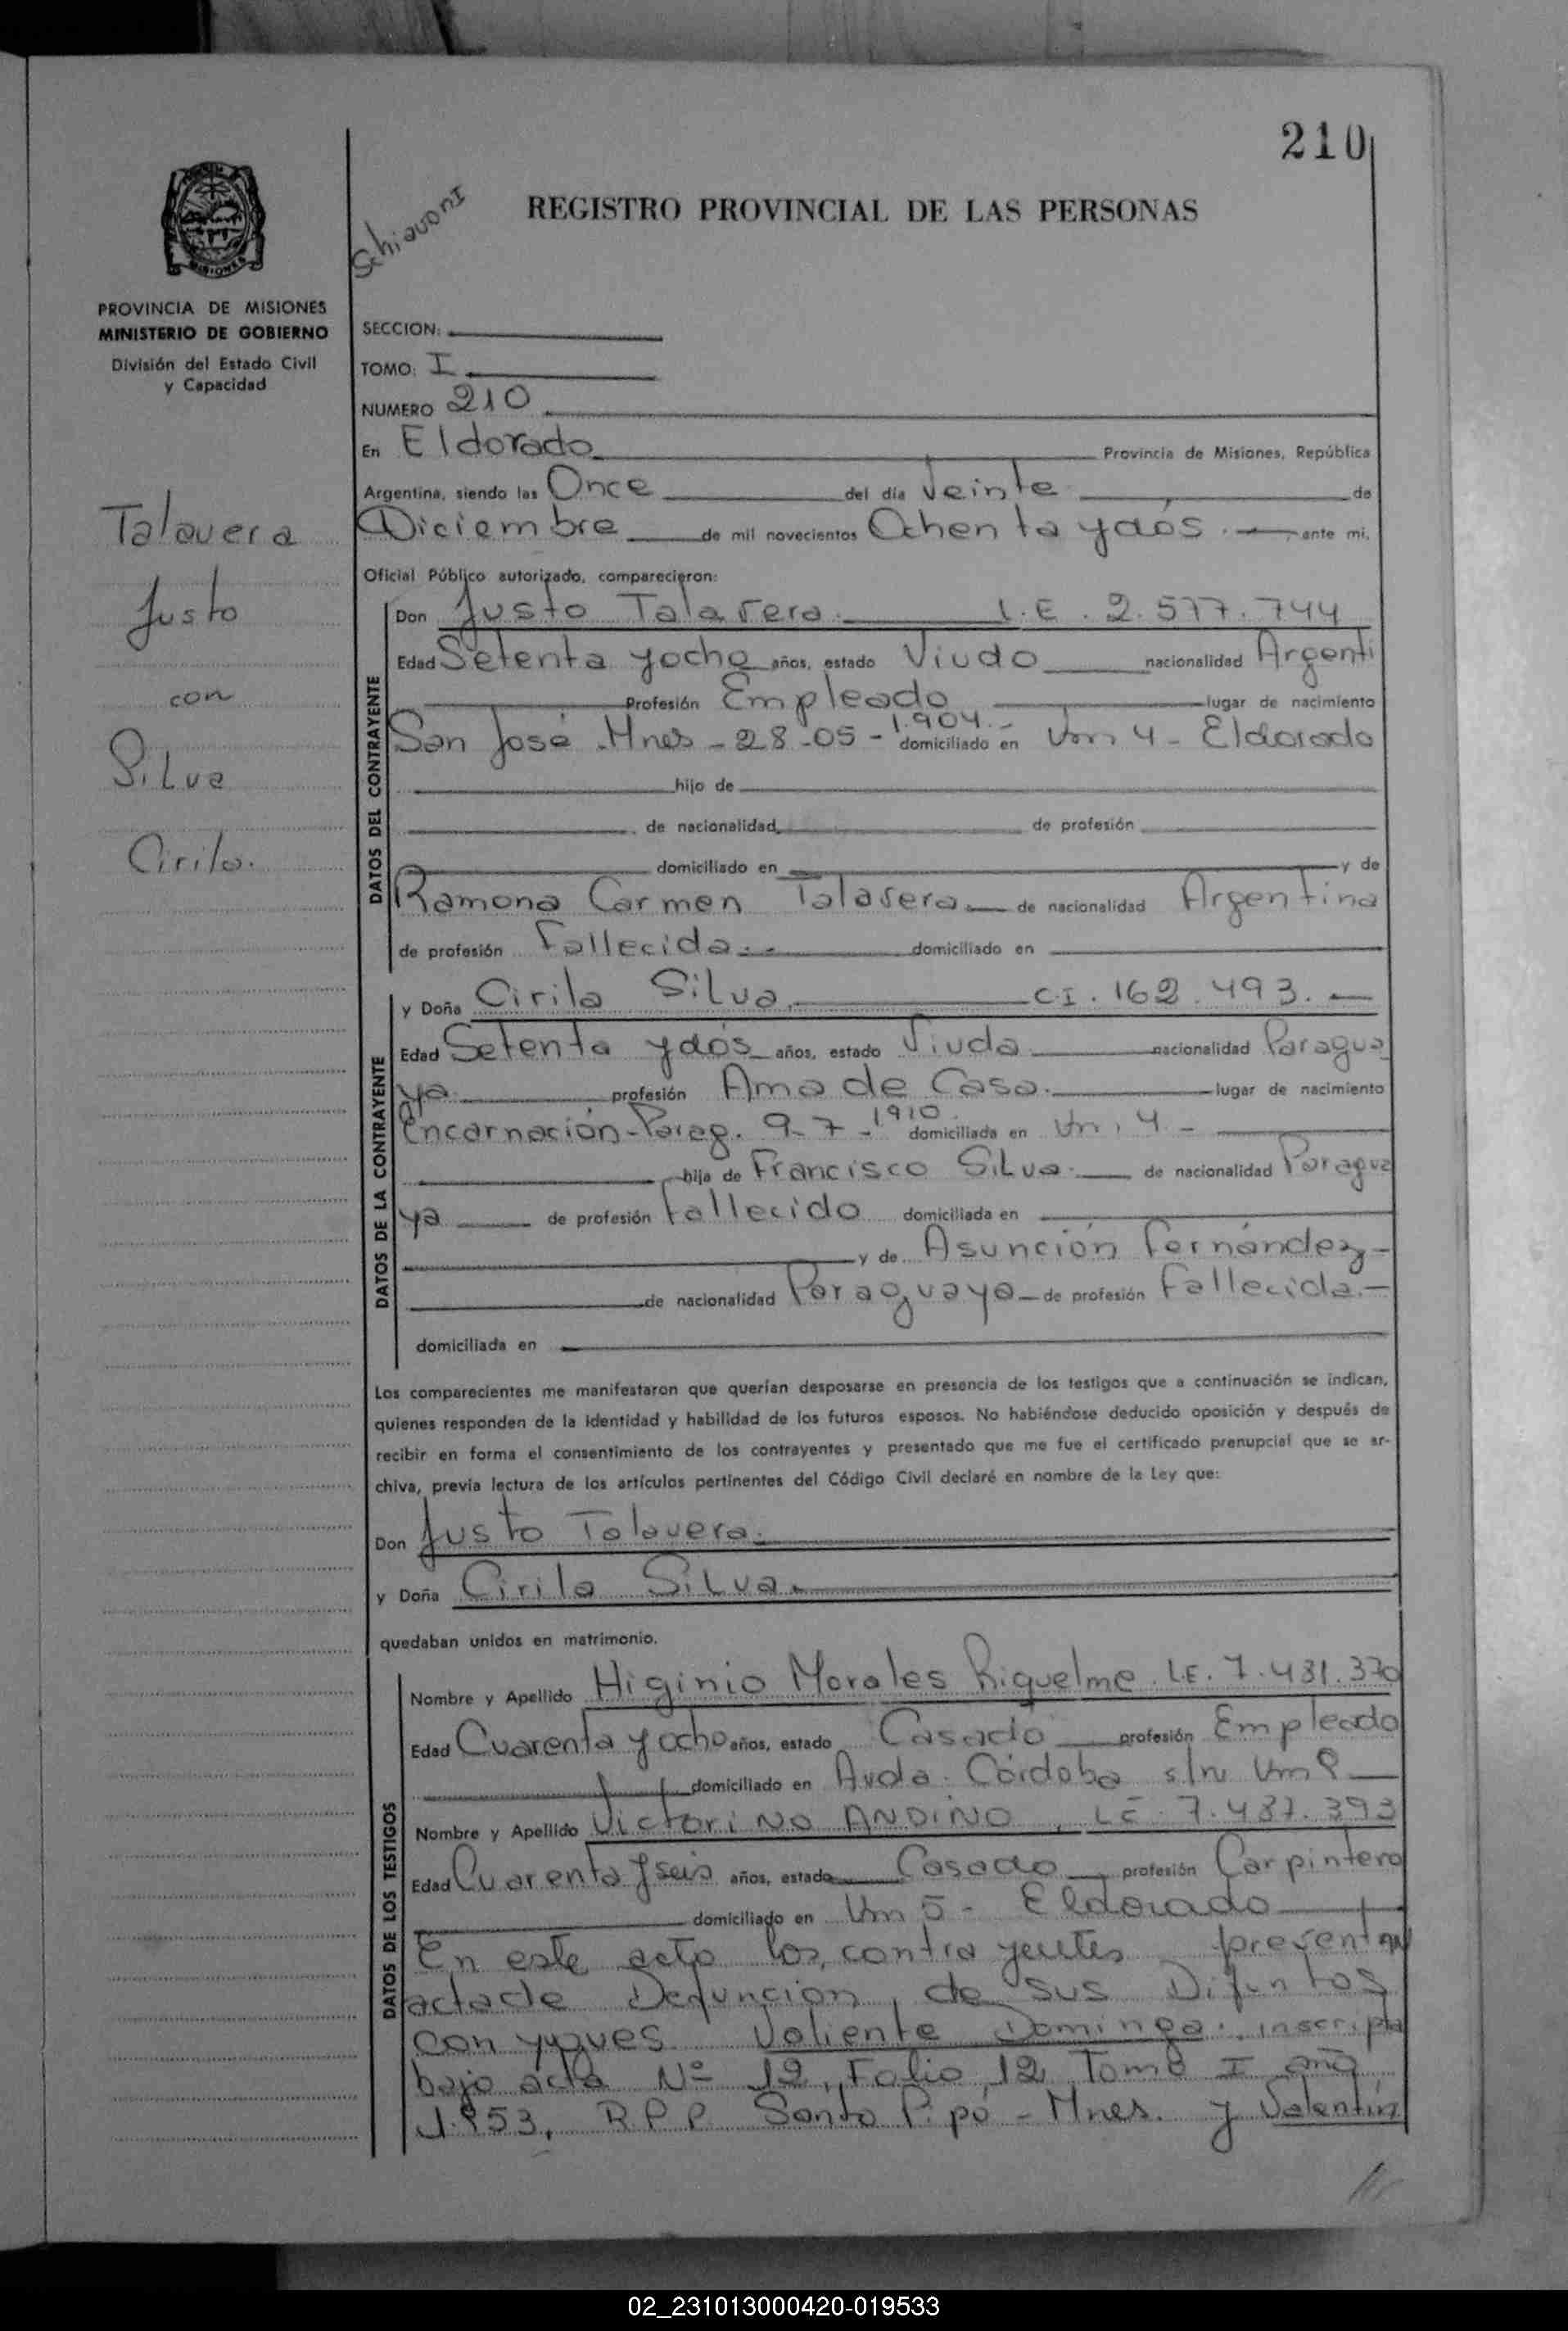 210
Schiavoni
REGISTRO PROVINCIAL DE LAS PERSONAS
MISIONES
PROVINCIA DE MISIONES
MINISTERIO DE GOBIERNO
División del Estado Civil
y Capacidad
Talavera
Justo
con
Silva
Cirila.
SECCION:
TOMO: I
NUMERO 210
En Eldorado Provincia de Misiones, República
Argentina, siendo las Once del día Veinte de
Diciembre de mil novecientos Ochenta y dos. ante mi,
Oficial Público autorizado, comparecieron:
DATOS DEL CONTRAYENTE
Don Justo Talavera. L.E. 2.577.744
Edad Setenta y ocho años, estado Viudo nacionalidad Argenti
Profesión Empleado lugar de nacimiento
San José - Mnes - 28-05-1.904.- domiciliado en Km 4 - Eldorado
hijo de
de nacionalidad de profesión
domiciliado en y de
Ramona Carmen Talavera de nacionalidad Argentina
de profesión Fallecida.- domiciliado en
DATOS DE LA CONTRAYENTE
y Doña Cirila Silva. C.I. 162.493.-
Edad Setenta y dos años, estado Viuda nacionalidad Paragua
ya profesión Ama de Casa. lugar de nacimiento
Encarnación - Parag. 9-7-1910. domiciliada en Km, 4 -
hija de Francisco Silva. de nacionalidad Paragua
ya de profesión Fallecido domiciliada en
y de Asunción Fernández-
de nacionalidad Paraguaya de profesión Fallecida.-
domiciliada en
Los comparecientes me manifestaron que querían desposarse en presencia de los testigos que a continuación se indican,
quienes responden de la identidad y habilidad de los futuros esposos. No habiéndose deducido oposición y después de
recibir en forma el consentimiento de los contrayentes y presentado que me fue el certificado prenupcial que se ar-
chiva, previa lectura de los artículos pertinentes del Código Civil declaré en nombre de la Ley que:
Don Justo Talavera.
y Doña Cirila Silva.
quedaban unidos en matrimonio.
DATOS DE LOS TESTIGOS
Nombre y Apellido Higinio Morales Riquelme. L.E. 7.431.370
Edad Cuarenta y ocho años, estado Casado profesión Empleado
domiciliado en Avda. Córdoba s/n Km 9
Nombre y Apellido Victorino ANDINO, L.E. 7.437.393
Edad Cuarenta y seis años, estado Casado profesión Carpintero
domiciliado en Km 5 - Eldorado
En este acto los contrayentes presentan
acta de Defuncion, de sus Difuntos
conyugues Valiente Dominga. inscripta
bajo acta Nº 12, Folio 12 Tomo I año
1.953, R.P.P. Santo Pipó - Mnes. y Valentín
02_231013000420-019533